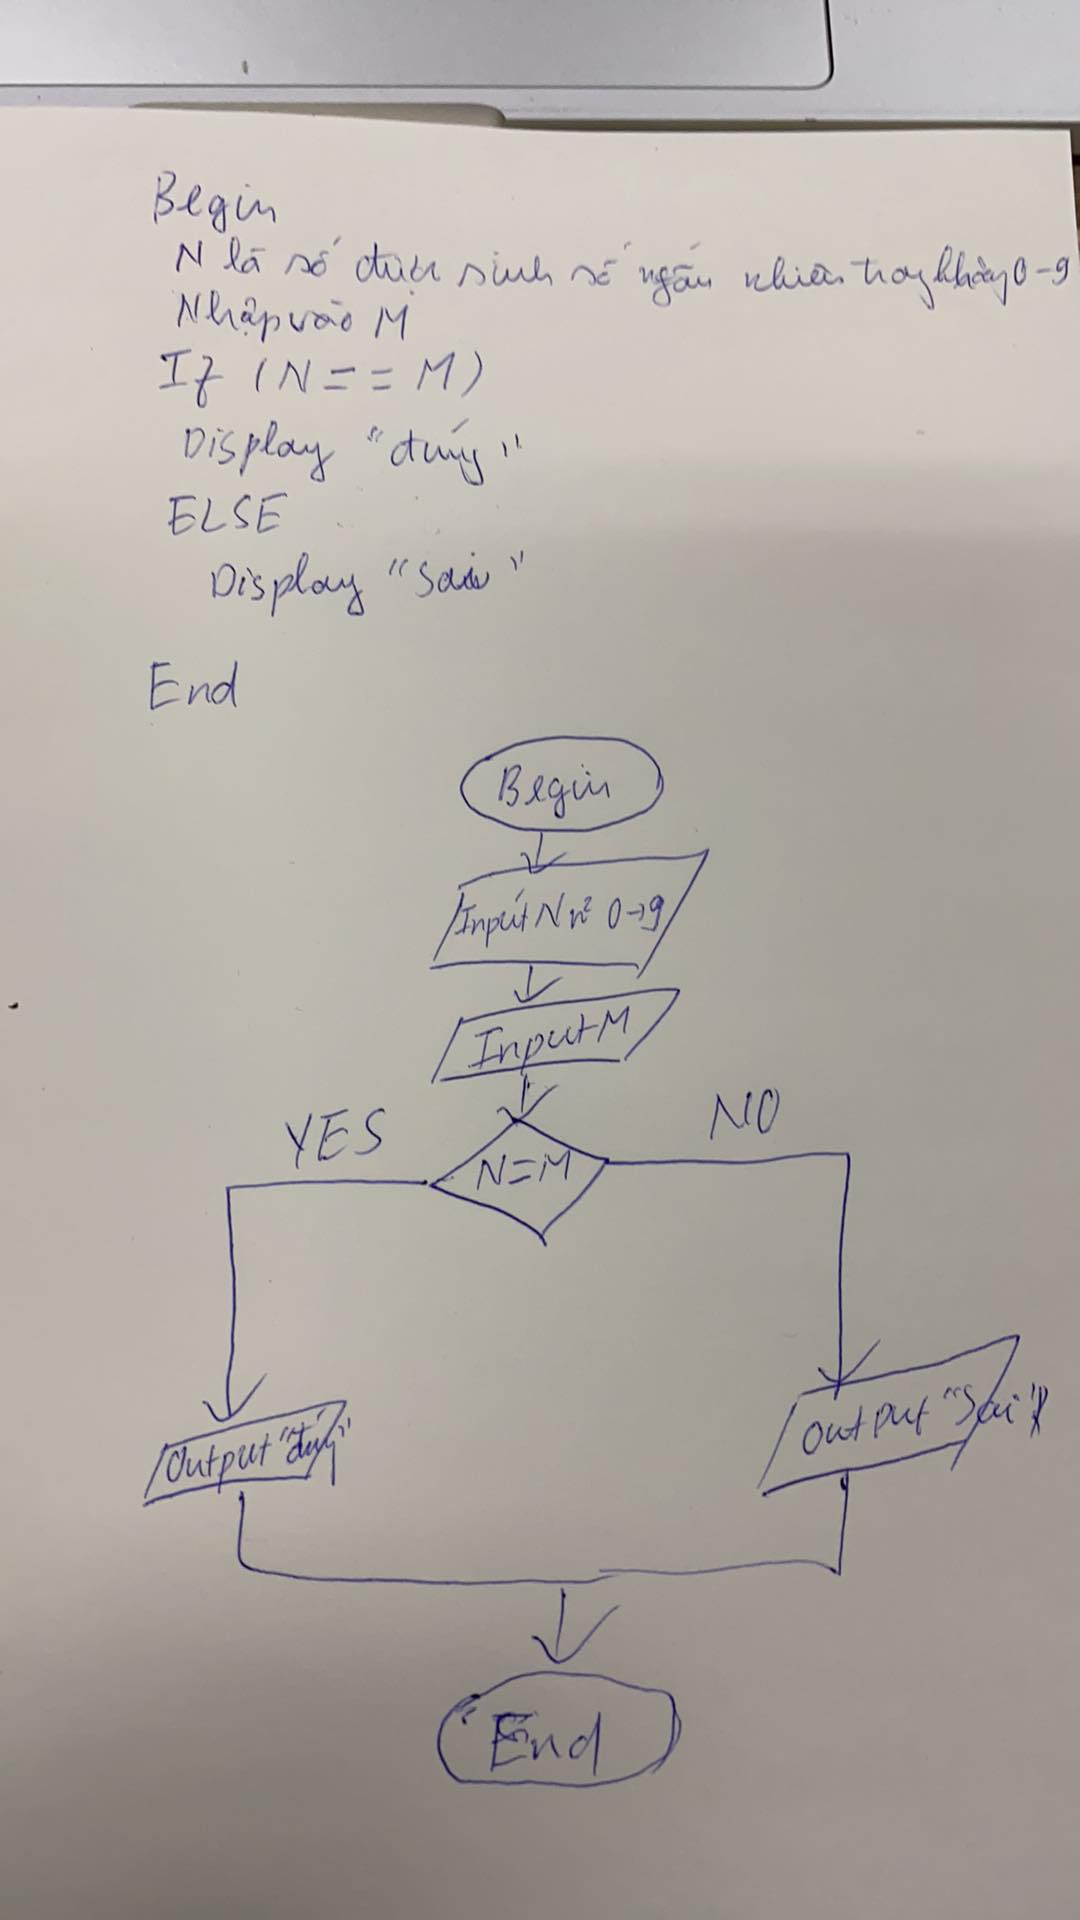 Begin
N là số được sinh số ngẫu nhiên trong khoảng 0-9
Nhập vào M
If (N == M)
Display "đúng"
ELSE
Display "Sai"
End
Begin
Input N 0→9
Input M
YES
NO
N=M
Output "đúng"
Output "Sai"
End